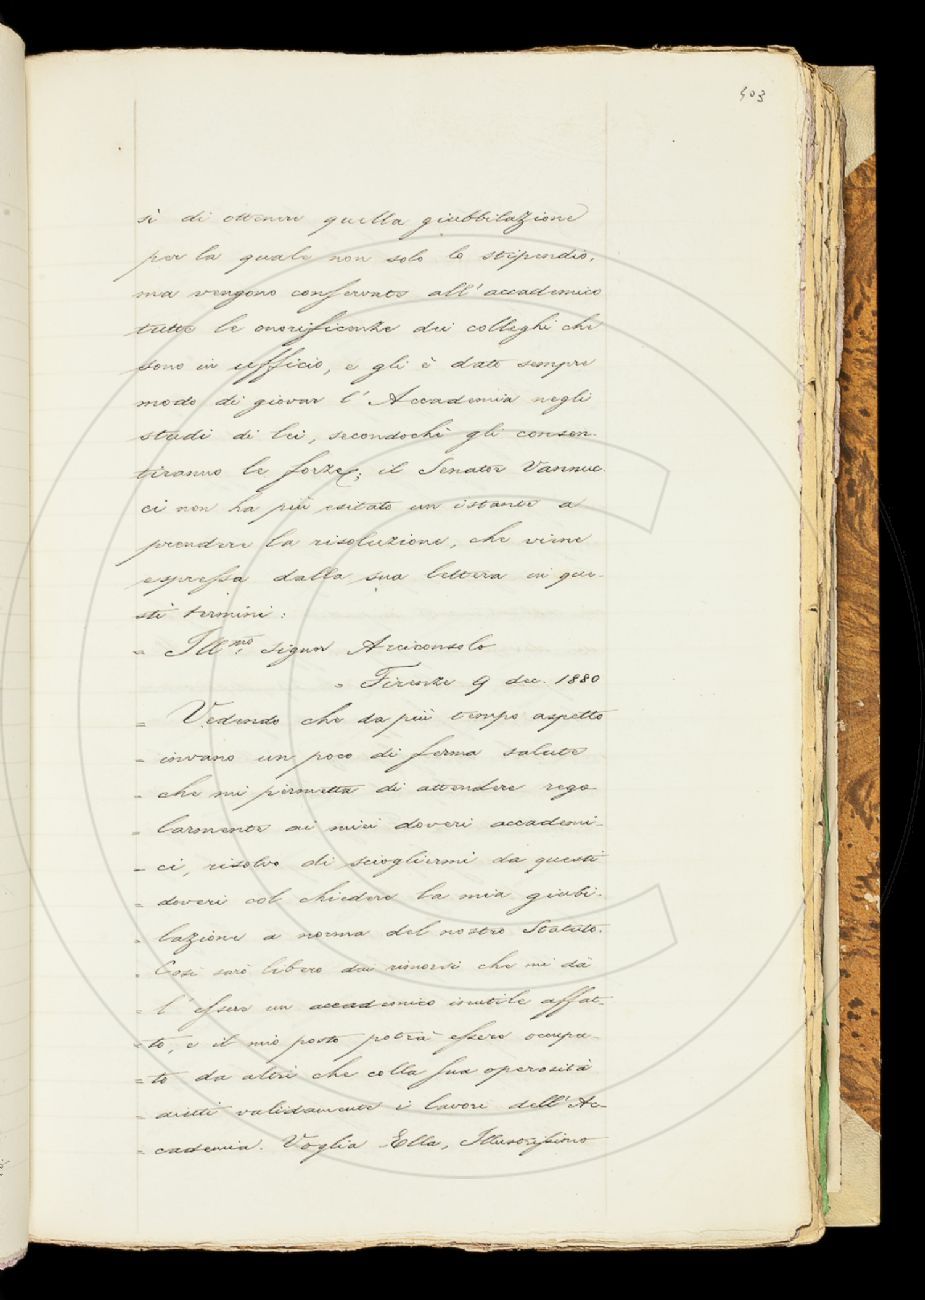 403
sì di ottenere quella giubbilazione
per la quale non solo lo stipendio,
ma vengono conservate all'accademico
tutte le onorificenze dei colleghi che
sono in ufficio, e gli è dato sempre
modo di giovar l'Accademia negli
studi di lei, secondochè gli consen-
tiranno le forze; il Senator Vannuc-
ci non ha più esitato un istante a
prendere la risoluzione, che viene
espressa dalla sua lettera in que-
sti termini:
= Ill.mo Signor Arciconsolo
= Firenze 9 dec. 1880
= Vedendo che da più tempo aspetto
= invano un poco di ferma salute
= che mi permetta di attendere rego
= larmente ai miei doveri accademi-
= ci, risolvo di sciogliermi da questi
= doveri col chiedere la mia giubi-
= lazione a norma del nostro Statuto.
= Così sarò libero dai rimorsi che mi dà
= l'essere un accademico inutile affat-
= to, e il mio posto potrà essere occupa-
= to da altri che colla sua operosità
= aiuti validamente i lavori dell'Ac-
= cademia. Voglia Ella, Illustrissimo